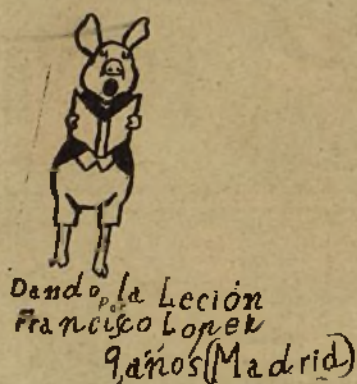 Dando la Leción
por
Francisco Lopez
9 años (Madrid)